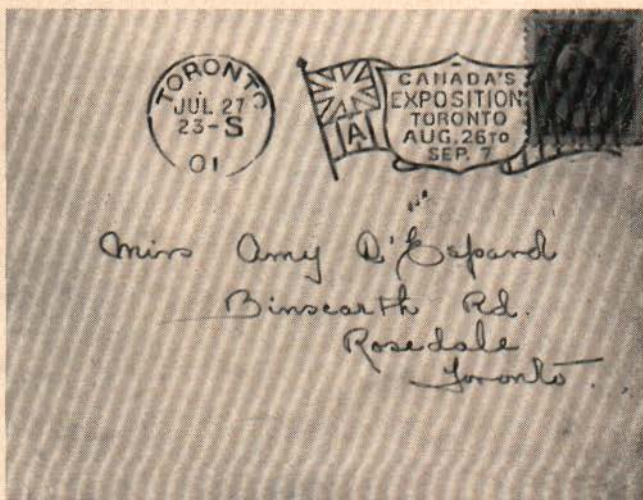 TORONTO
JUL 27
23-S
01
A
CANADA'S
EXPOSITION
TORONTO
AUG. 26 TO
SEP. 7
Miss Amy D'Espard
Binscarth Rd.
Rosedale
Toronto